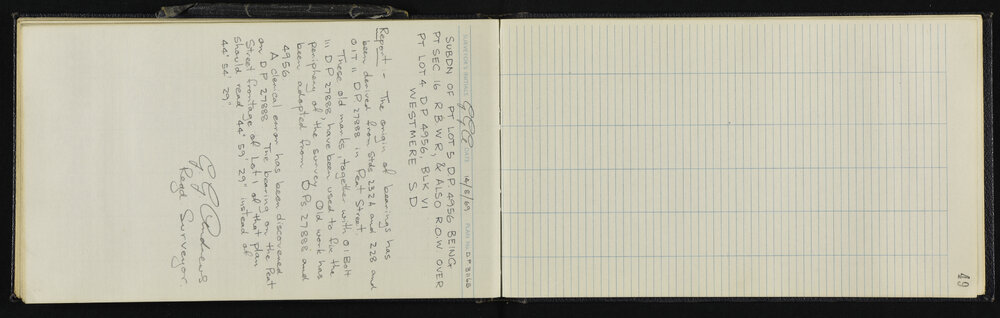 SURVEYOR'S INITIALS G.G.A DATE 14/8/69 PLAN No. D.P. 31068
SUBDN OF PT LOT 5 D.P. 4956 BEING
PT SEC 16 R.B.W.R, & ALSO R.O.W OVER
PT LOT 4 D.P. 4956, BLK VI
WESTMERE S.D.
Report - The origin of bearings has
been derived from Stds 232A and 228 and
O.I.T 11 D.P. 27888 in Peat Street.
These old marks, together with O.I Bolt
III D.P 27888, have been used to fix the
periphery of the survey. Old work has
been adopted from D.Ps 27888 and
4956.
A clerical error has been discovered
on D.P. 27888. The bearing on the Peat
Street frontage of Lot 1 of that plan
should read 44° 59' 29" instead of
44° 54' 29"
G G Andrews
Regd Surveyor.
49